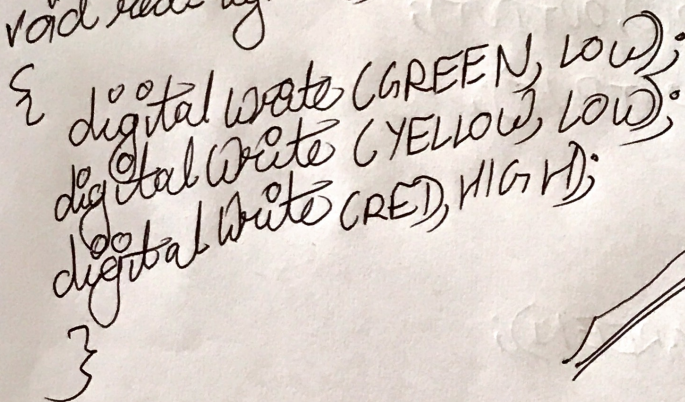 void
{ digital write (GREEN, LOW);
digital Write (YELLOW, LOW);
digital Write (RED, HIGH);
}